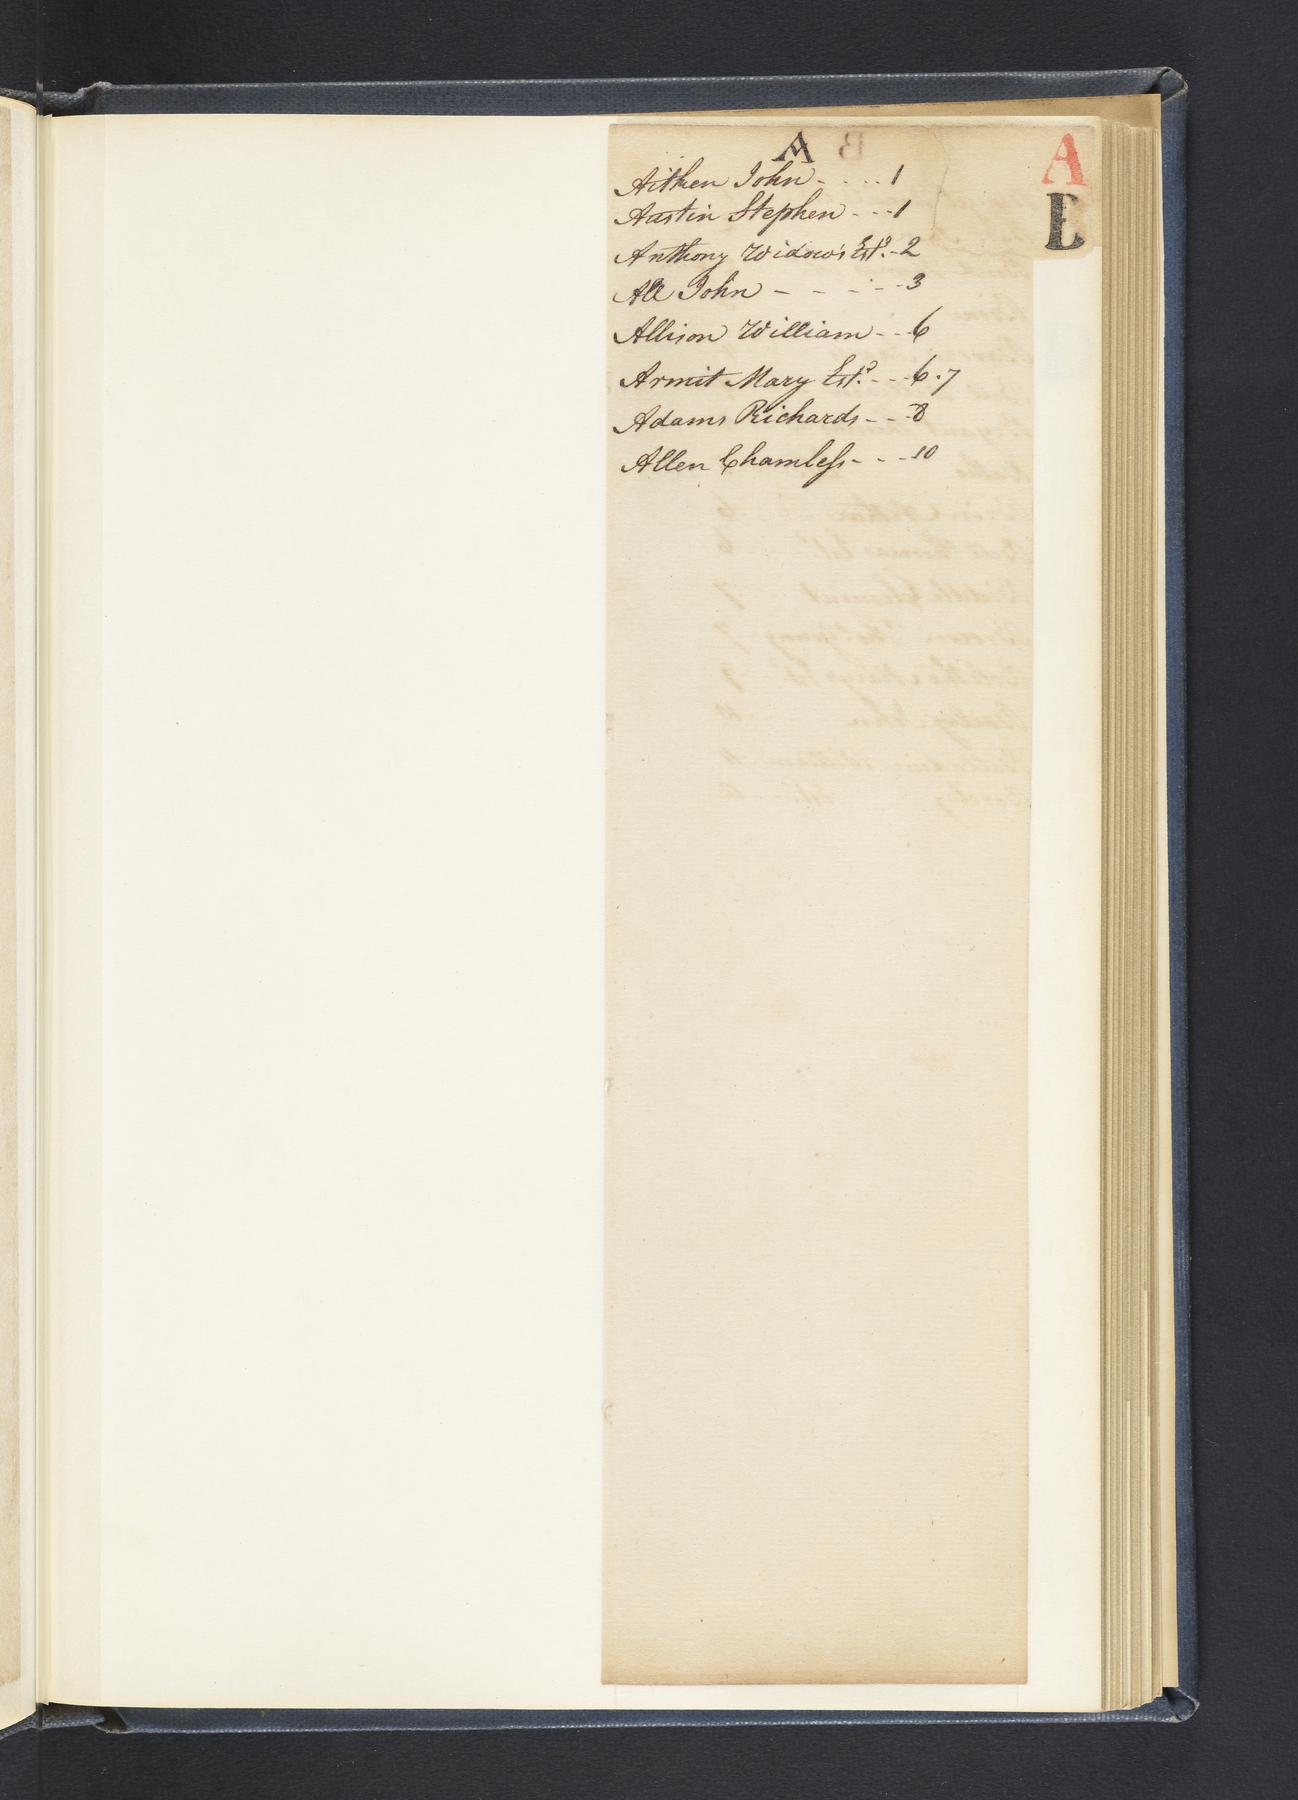 A
A
E
Aitken John - . . . . 1
Austin Stephen - - - 1
Anthony Widow's Est.ᵈ - 2
All John - - - - - 3
Allison William - - 6
Armit Mary Est.ᵈ - - - 6 . 7
Adams Richards - - - 8
Allen Chamless - - - 10